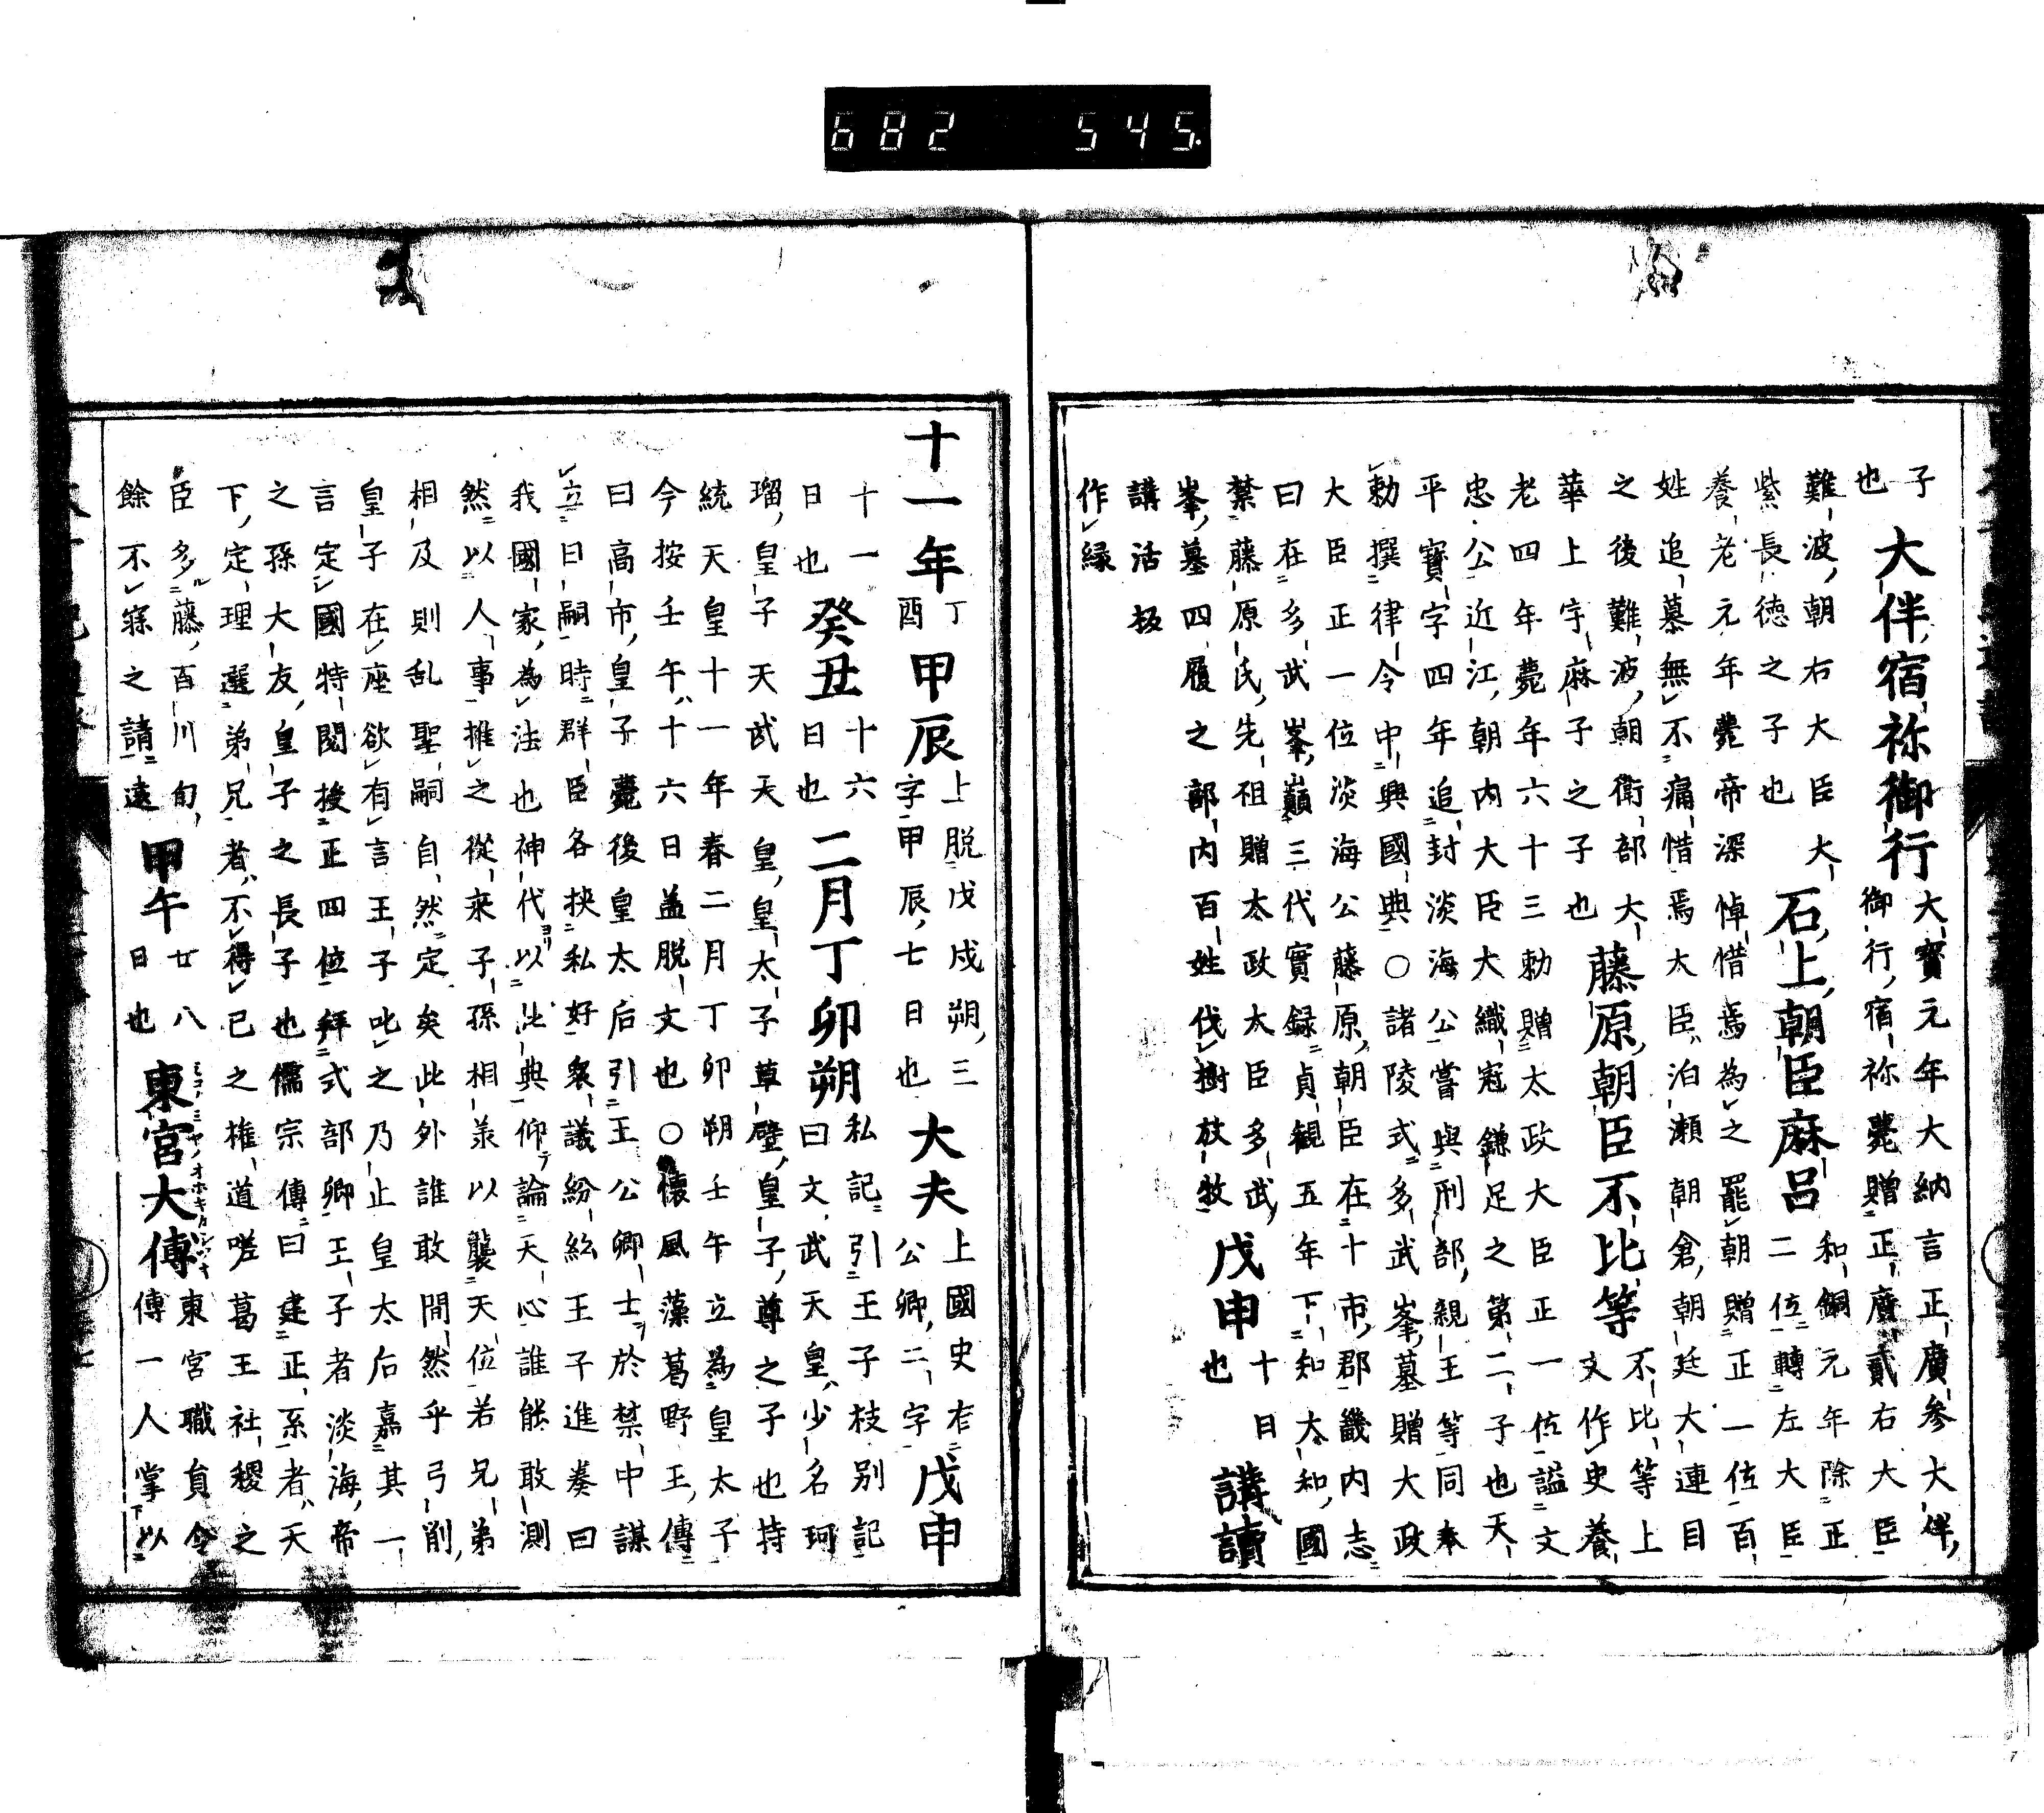 子
也
大伴宿祢御行
大寶元年大納言正廣參大伴
御行宿祢薨贈正廣貳右大臣
難波朝右大臣大
紫長徳之子也
石上朝臣麻呂
和銅元年除正
二位轉左大臣
養老元年薨帝深悼惜焉為之罷朝贈正一位百
姓追慕無不痛惜焉大臣泊瀬朝倉朝廷大連目
之後難波朝衛部大
華上宇麻子之子也
藤原朝臣不比等
不比等上
文作史養
老四年薨年六十三勅贈太政大臣正一位謚文
忠公近江朝内大臣大織冠鎌足之第二子也天
平寶字四年追封淡海公嘗與刑部親王等同奉
勅撰律令中興國典○諸陵式多武峯墓贈大政
大臣正一位淡海公藤原朝臣在十市郡畿内志
曰在多武峯巓三代實録貞観五年下知大和國
禁藤原氏先祖贈太政大臣多武
峯墓四履之部内百姓伐樹放牧
戊申
十日
也
講讀
講活板
作縁
十一年
丁
酉
甲辰
上脱戊戌朔三
字甲辰七日也
大夫
上國史有
公卿二字
戊申
十一
日也
癸丑
十六
日也
二月丁卯朔
私記引王子枝別記
曰文武天皇少名珂
瑠皇子天武天皇皇太子草壁皇子尊之子也持
統天皇十一年春二月丁卯朔壬午立為皇太子
今按壬午十六日盖脱文也○懐風藻葛野王傳
曰高市皇子薨後皇太后引王公卿士於禁中謀
立日嗣時群臣各挟私好衆議紛紜王子進奏曰
我國家為法也神代以此典仰論天心誰能敢測
然以人事推之從来子孫相承以襲天位若兄弟
相及則乱聖嗣自然定矣此外誰敢間然乎弓削
皇子在座欲有言王子叱之乃止皇太后嘉其一
言定國特閲授正四位拜式部卿王子者淡海帝
之孫大友皇子之長子也儒宗傳曰建正系者天
下定理選弟兄者不得已之権道嗟葛王社稷之
臣多藤百川旬
餘不寐之請遠
甲午
廿八
日也
東宮大傳
東宮職員令
傳一人掌以
682 545